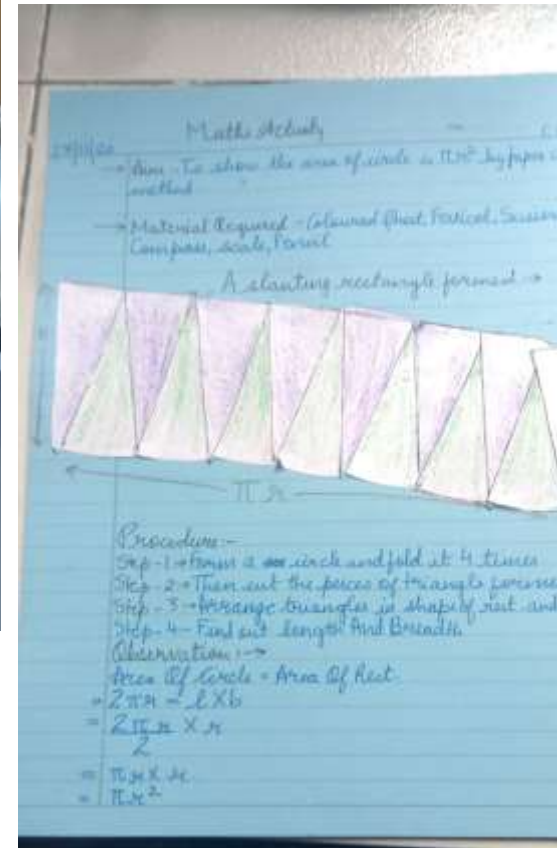 Maths Activity
Aim - To show the area of circle is πr² by paper
method
→ Material Required - Coloured Sheet, Fevicol, Scissor
Compass, scale, Pencil
A slanting rectangle formed →
πr
Procedure :-
Step - 1 → Form a circle and fold it 4 times
Step - 2 → Then cut the peices of triangle
Step - 3 → Arrange triangles in shape of rect and
Step - 4 - Find out length And Breadth
Observation :→
Area Of Circle = Area Of Rect.
= 2πr = l×b
= 2πr × r
2
= πr × r
= πr²